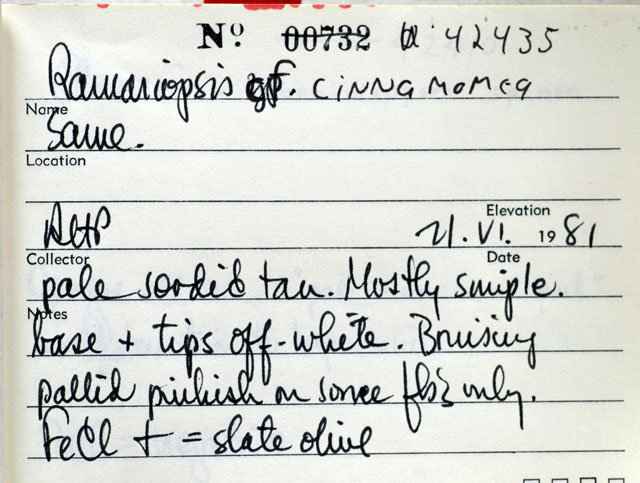 Nº 00732 42435
Ramariopsis cf. cinnamomea
Name
Same.
Location
Elevation
21.VI. 1981
Collector Date
pale sordid tan. Mostly simple.
Notes
base + tips off-white. Bruising
pallid pinkish on some only.
FeCl + = slate olive